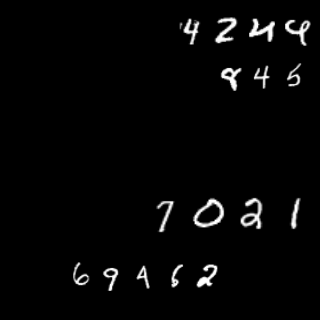 4244
845
7021
69462